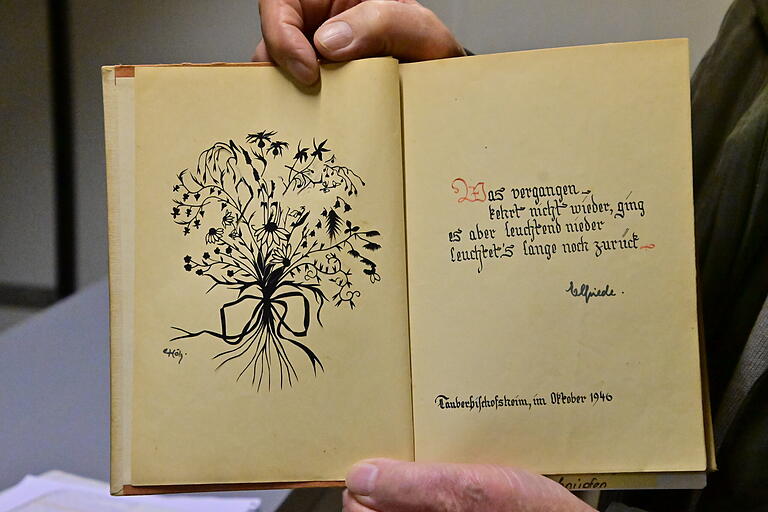 Was vergangen
kehrt nicht wieder, ging
es aber leuchtend nieder
leuchtet's lange noch zurück
Elfriede.
Tauberbischofsheim, im Oktober 1946